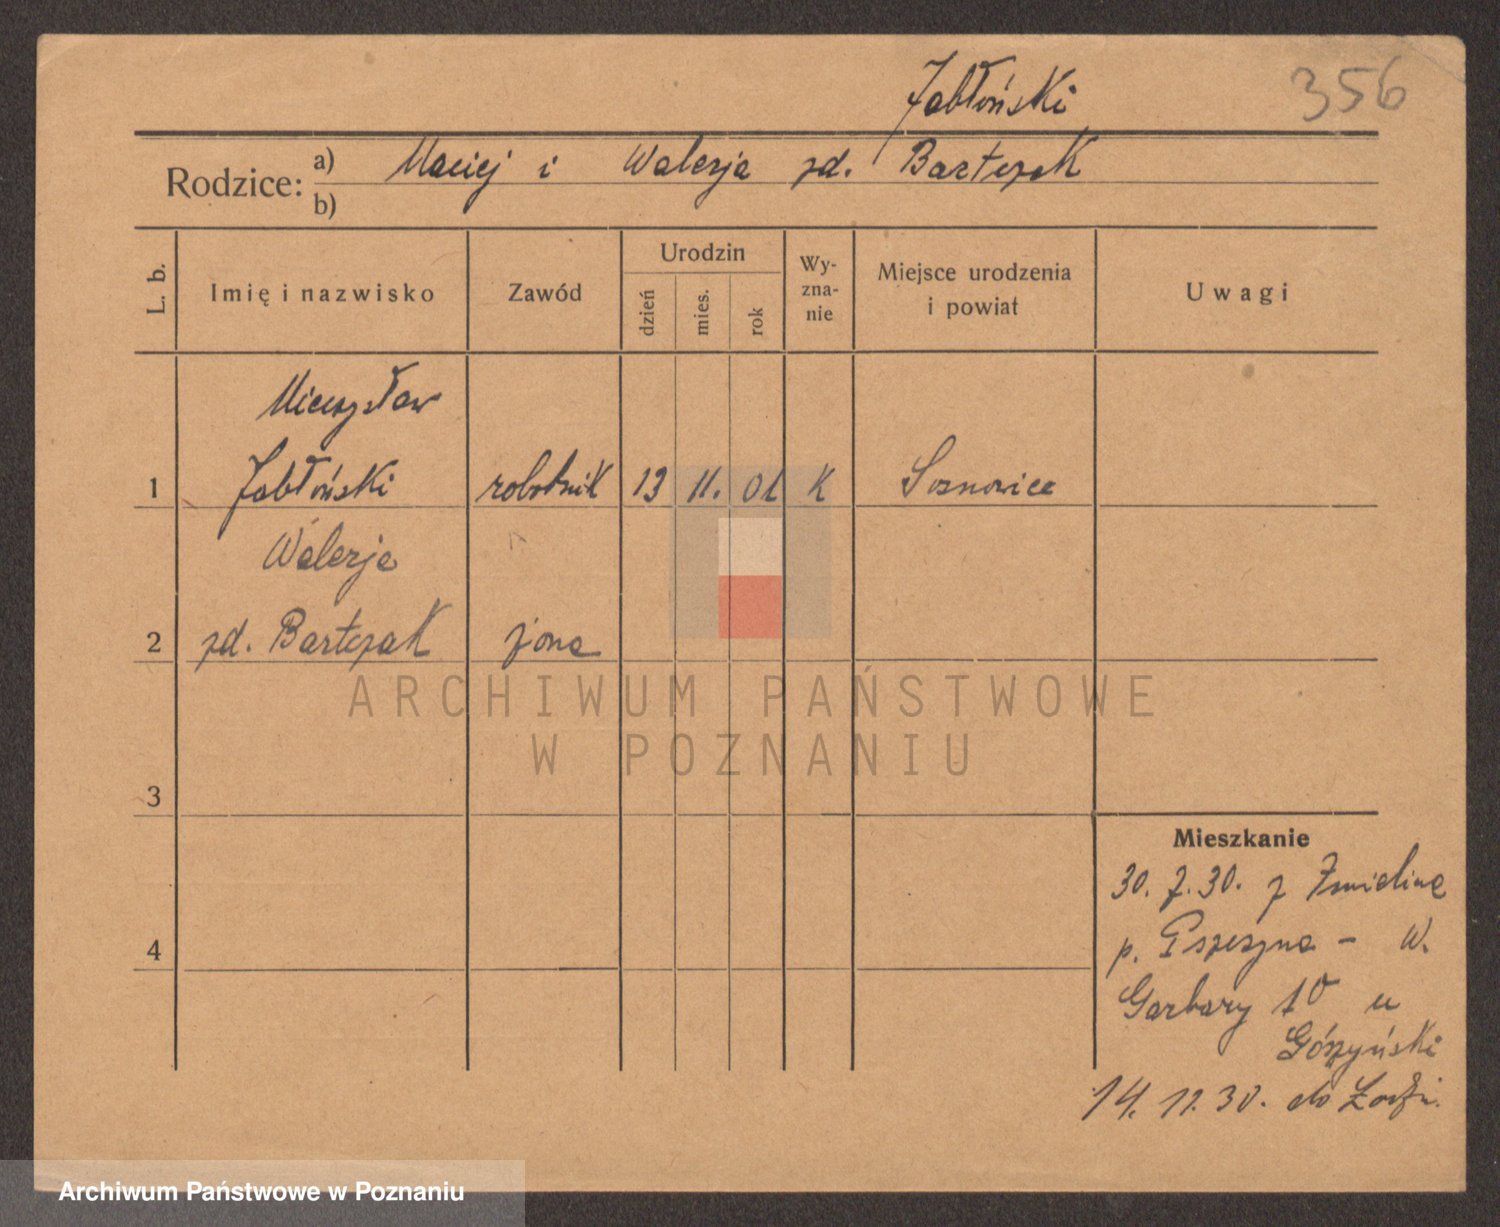 Jabłoński
356
Rodzice: a) Maciej i Walerja zd. Bartczak
b)
L. b.
Imię i nazwisko
Zawód
Urodzin
dzień
mies.
rok
Wy-
zna-
nie
Miejsce urodzenia
i powiat
Uwagi
Mieczysław
1 Jabłoński robotnik 13 11. 01 K Sosnowice
Walerja
2 zd. Bartczak żona
ARCHIWUM PAŃSTWOWE
W POZNANIU
3
4
Mieszkanie
30. 7. 30. z
p. - W.
Garbary 10 u
Górzyński
14. 11. 30. do Łodzi.
Archiwum Państwowe w Poznaniu